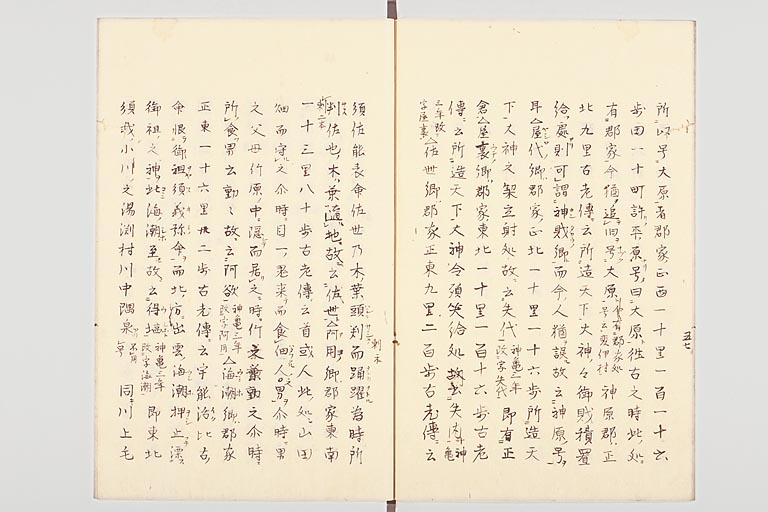 所以号大原者郡家正西一十里一百一十六
歩田一十町許平原号曰大原往古之時此処
有郡家今猶追旧号大原 神原郷郡正
北九里古老傳云所造天下大神之御財積置
給處則可謂神財郷而今人猶誤故云神原号
耳屋代郷郡家正北一十里一十六歩所造天
下大神之䂨立射処故云矢代神亀三年改字矢代即有正
倉屋裏郷郡家東北一十里一百十六歩古老
傳云所造天下大神令須笑給処故云矢内神亀
三年改字屋裏佐世郷郡家正東九里二百歩古老傳云
須佐能袁命佐世乃木葉頭刺而踊躍為時所
刺佐世木葉墮地故云佐世阿用郷郡家東南
一十三里八十歩古老傳云昔或人此処山田
佃而守之尒時目一鬼来而食佃人之男尒時男
之父母竹原中隠而居之時竹葉動之尒時
所食男云動々故云阿欲神亀三年改字阿用海潮郷郡家
正東一十六里卅三歩古老傳云宇能治比古
命恨御祖須義祢命而北方出雲海潮押上漂
御祖之神此海潮至故云得塩神亀三年改字海潮即東北
須我小川之湯渕村川中隅泉不用号同川上毛